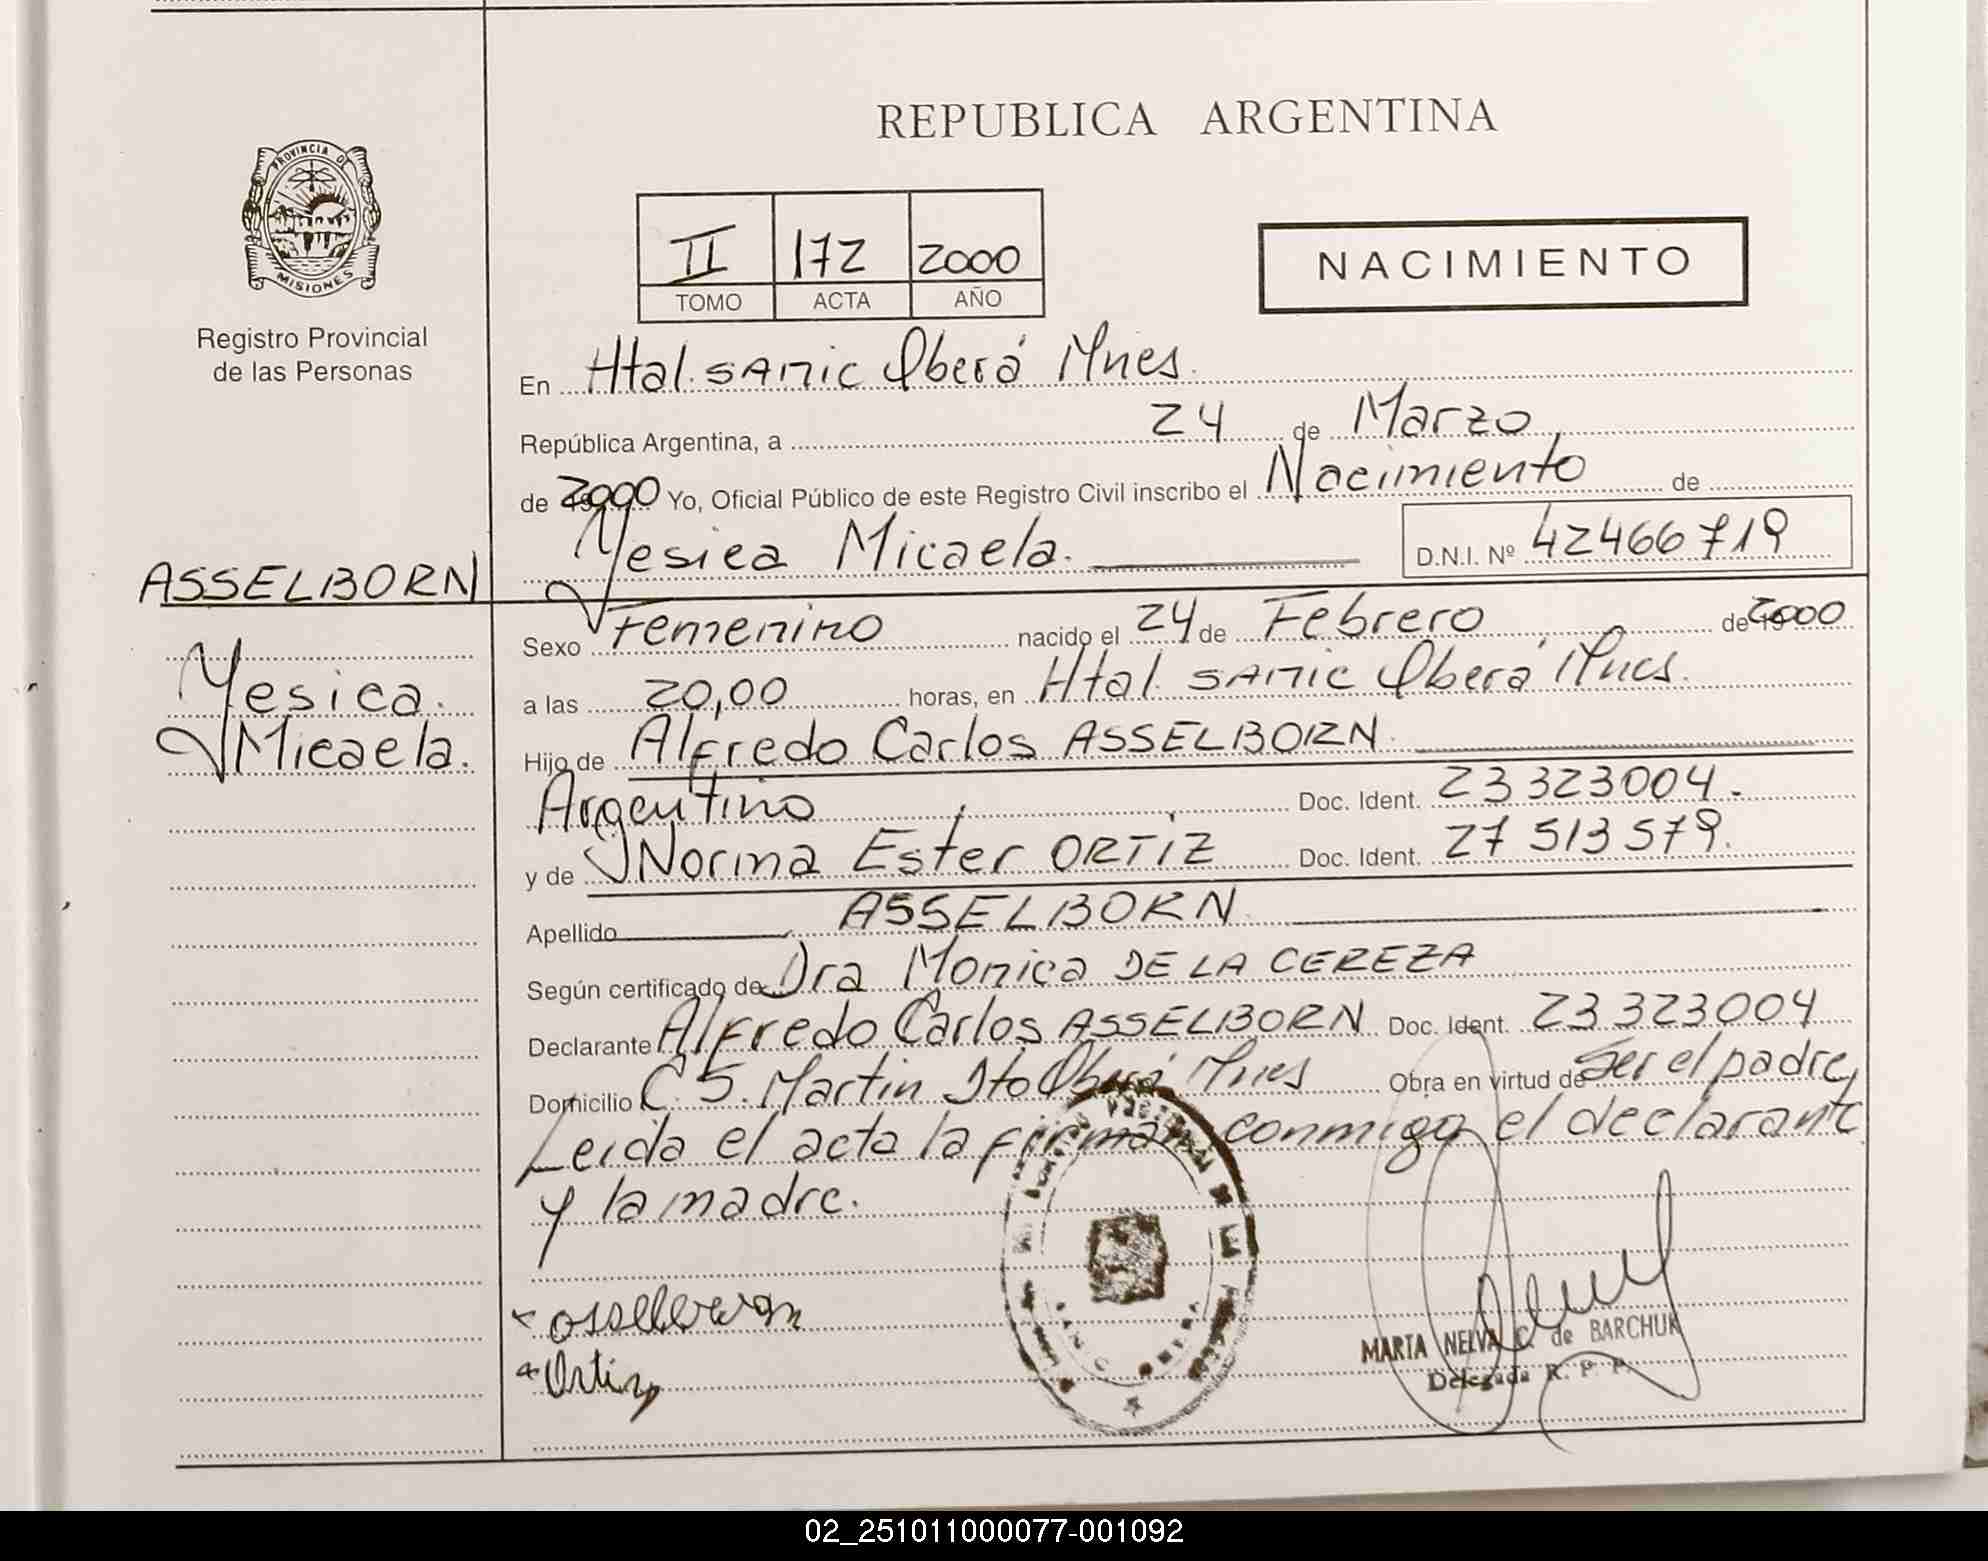 REPUBLICA ARGENTINA
PROVINCIA DE
MISIONES
Registro Provincial
de las Personas
II 172 2000
TOMO ACTA AÑO
NACIMIENTO
En Htal. SAMIC Oberá Mnes.
República Argentina, a 24 de Marzo
de 2000 Yo, Oficial Público de este Registro Civil inscribo el Nacimiento de
Yesica Micaela. D.N.I. Nº 42466719
ASSELBORN
Yesica.
Micaela.
Sexo Femenino nacido el 24 de Febrero de 2000
a las 20,00 horas, en Htal. SAMIC Oberá Mnes.
Hijo de Alfredo Carlos ASSELBORN
Argentino Doc. Ident. 23323004.
y de Norma Ester ORTIZ Doc. Ident. 27 513579.
Apellido ASSELBORN
Según certificado de Dra Monica DE LA CEREZA
Declarante Alfredo Carlos ASSELBORN Doc. Ident. 23323004
Domicilio C. S. Martin Oberá Mnes Obra en virtud de ser el padre,
Leida el acta la firman conmigo el declarante
y la madre.
Ortiz
MARTA NELVA C. de BARCHUK
Delegada R. P. P.
02_251011000077-001092